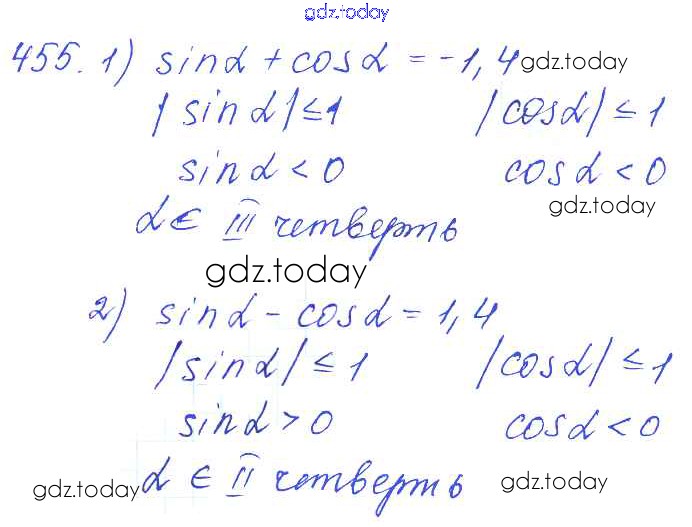 gdz.today
455. 1) sinα + cosα = -1,4 gdz.today
|sinα| ≤ 1 |cosα| ≤ 1
sinα < 0 cosα < 0
gdz.today
α ∈ III четверть
gdz.today
2) sinα - cosα = 1,4
|sinα| ≤ 1 |cosα| ≤ 1
sinα > 0 cosα < 0
gdz.today α ∈ II четверть gdz.today